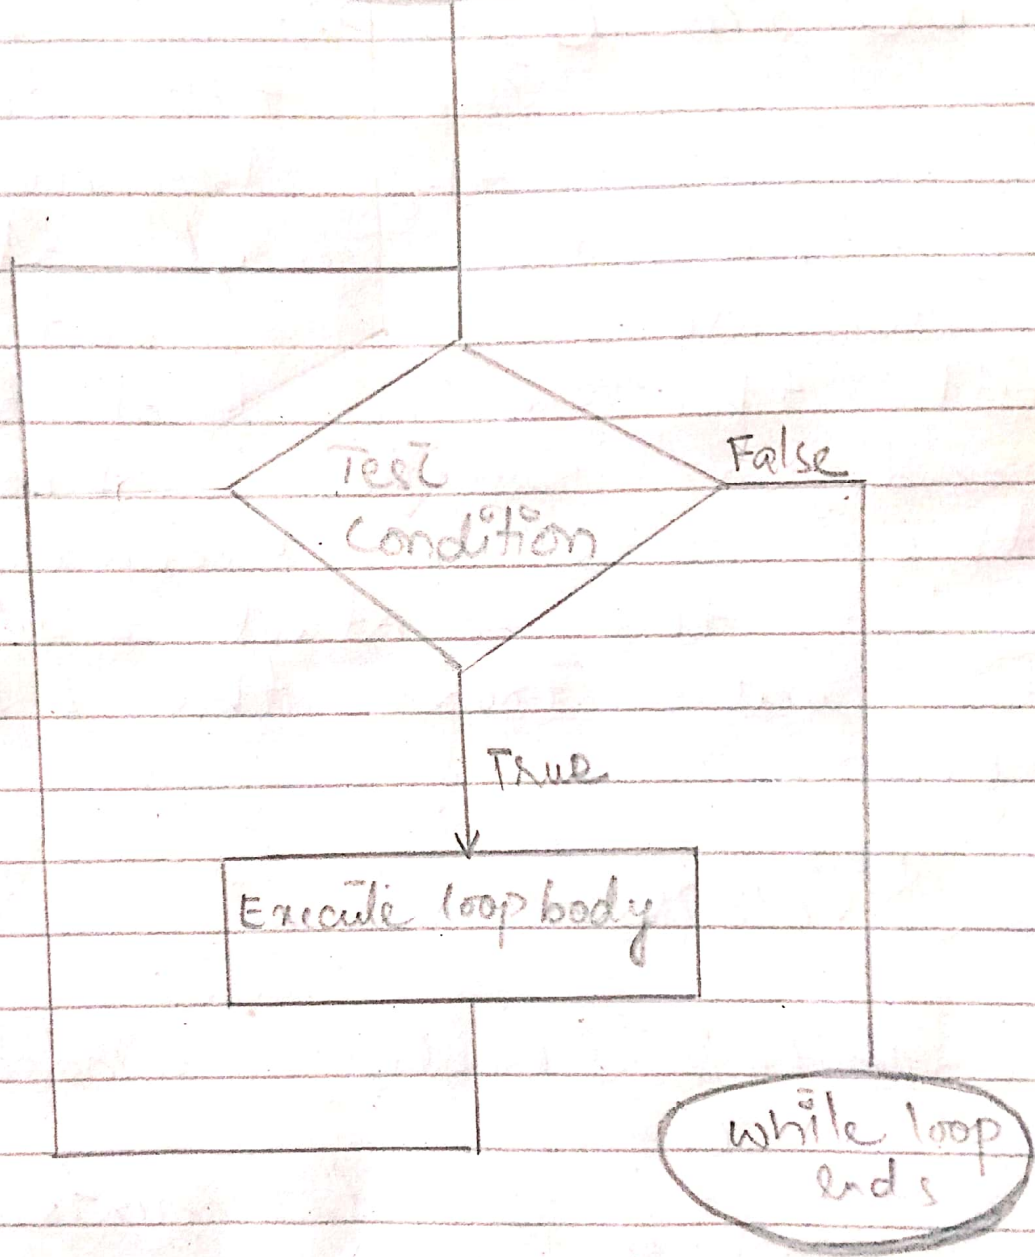 Test
False
Condition
True
Execute loop body
while loop
ends